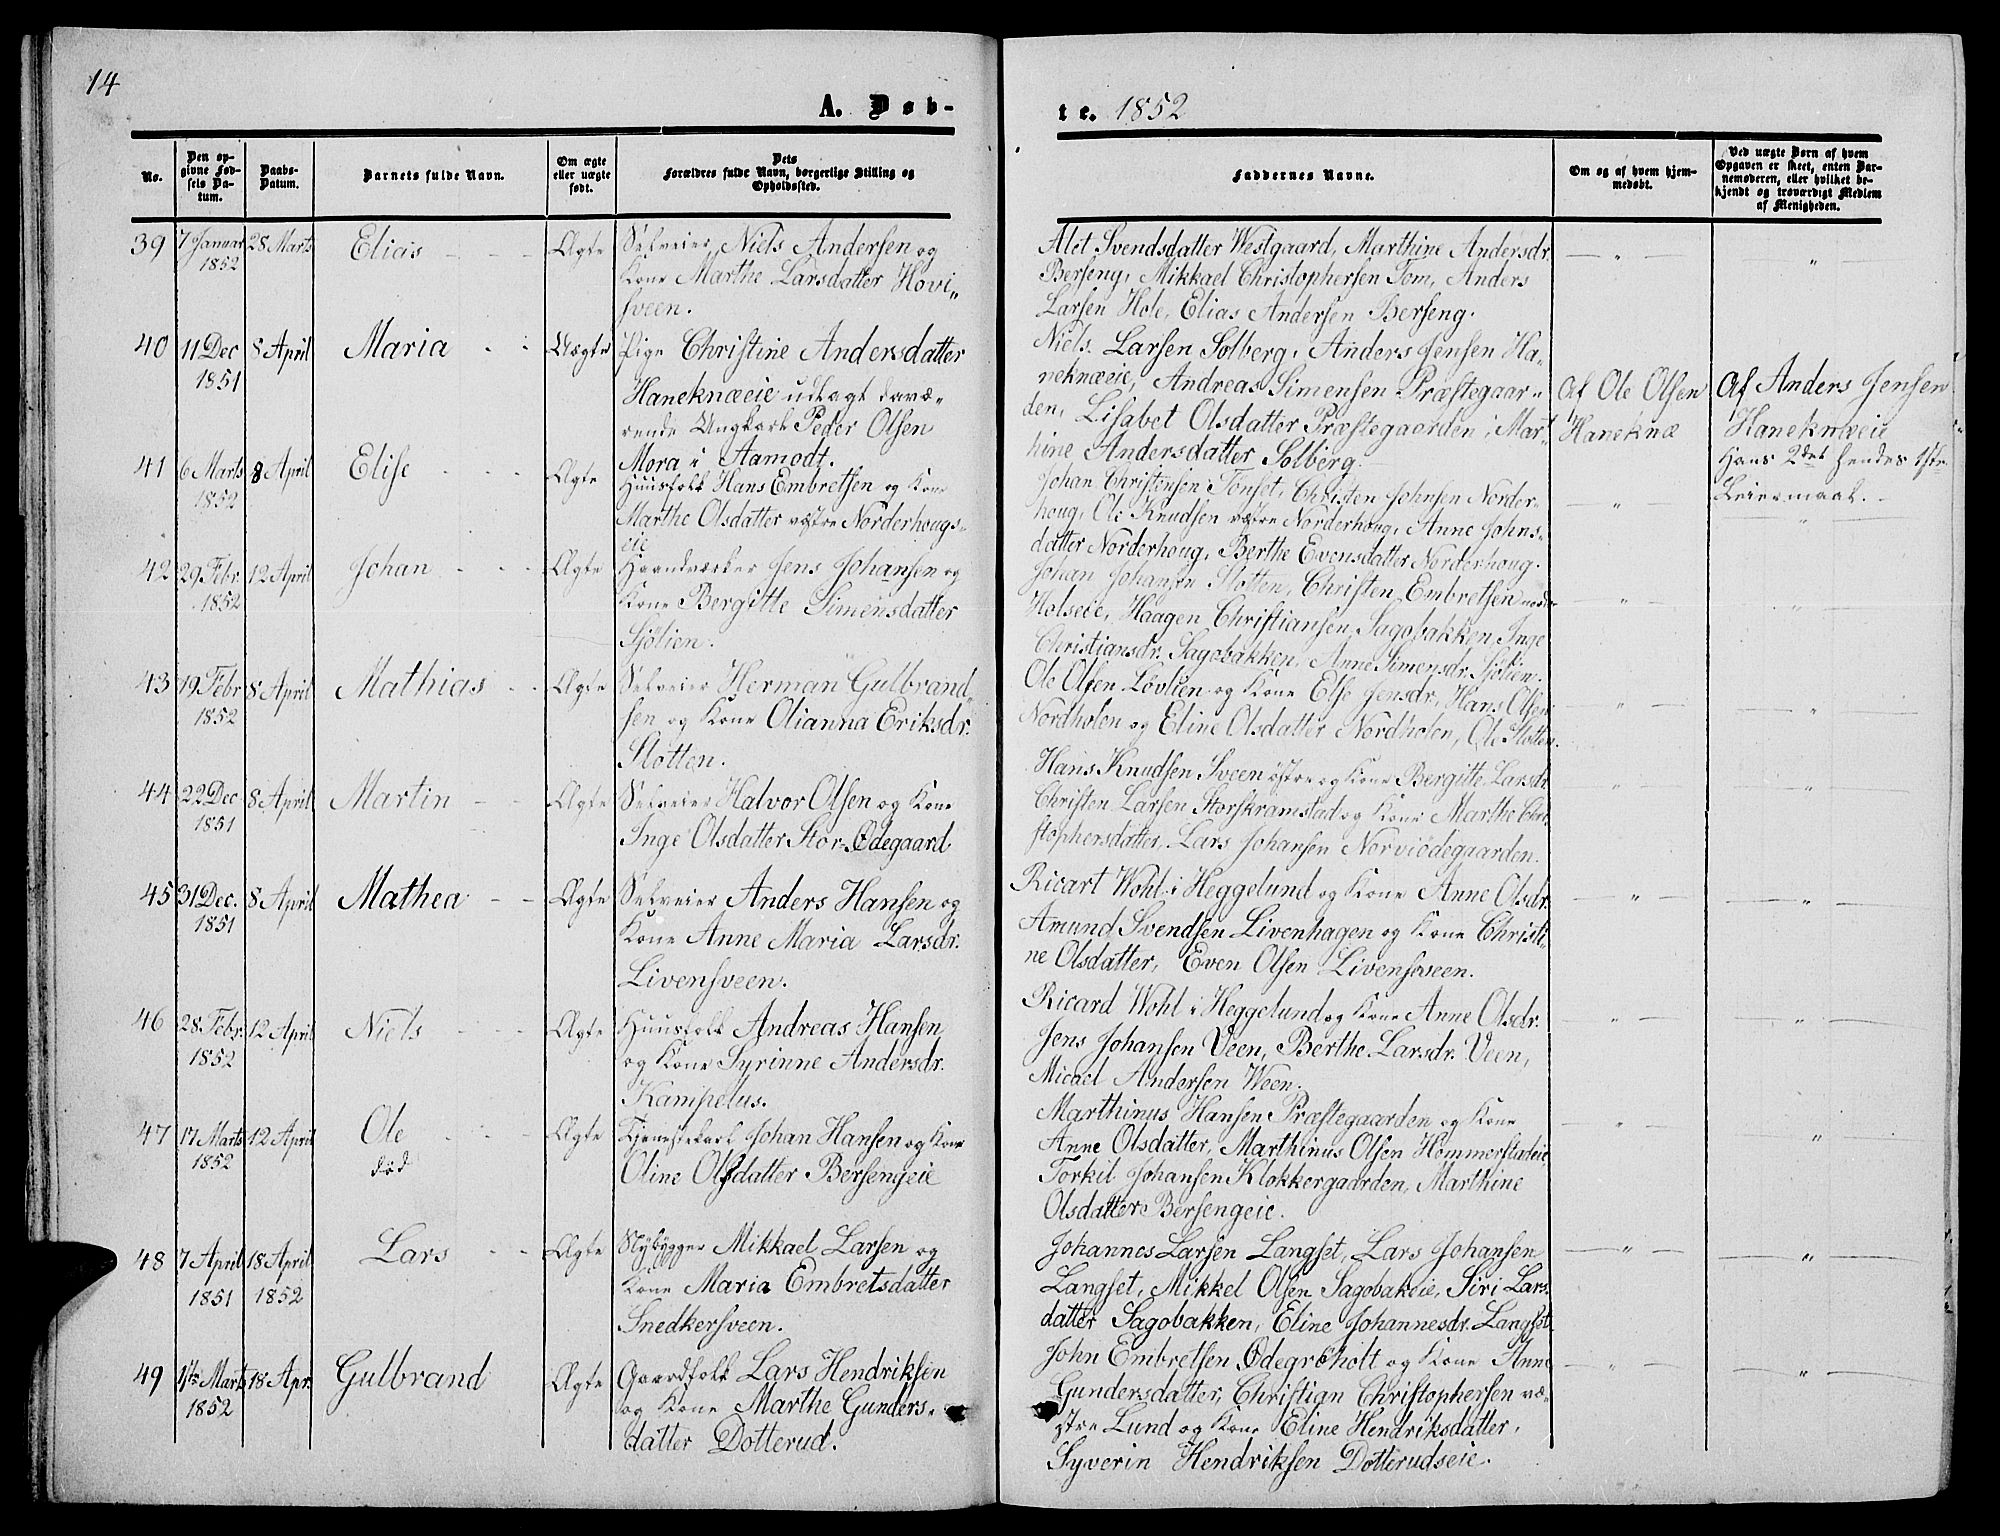 14
A. Døb-
te. 1852
No.
Den op-
givne Fød-
sels Da-
tum.
Daabs-
Datum.
Barnets fulde Navn.
Om ægte
eller uægte
født.
Dets
Forældres fulde Navn, borgerlige Stilling og
Opholdssted.
Faddernes Navne.
Om og af hvem hjem-
medøbt.
Ved uægte Børn af hvem
Opgaven er skeet, enten Bar-
nemoderen, eller hvilket be-
kjendt og troværdigt Medlem
af Menigheden.
39 7 Januar 28 Marts Elias Ægte Selveier Niels Andersen og
1852 Kone Marthe Larsdatter Hovi„
sveen.
Alet Svendsdatter Westgaard, Marthine Andersdr.
Berseng, Mikkael Christophersen Tom, Anders
Larsen Hole, Elias Andersen Berseng.
40 11 Dec 8 April Maria Uægte Pige Christine Andersdatter
1851 Haneknæeie udlagt davæ-
rende Ungkarl Peder Olsen
Mora i Aamodt.
Niels Larsen Solberg, Anders Jensen Ha-
neknæeie, Andreas Simensen Præstegaar-
den, Lisabet Olsdatter Præstegaarden, Mart-
hine Andersdatter Solberg.
Af Ole Olsen
Haneknæ
Af Anders Jensen
Haneknæeie
Hans 2det hendes 1ste
Leiermaal.
41 6 Marts 8 April Elise Ægte Huusfolk Hans Embretsen og Kone
1852 Marthe Olsdatter vestre Norderhougs-
eie
Johan Christensen Tønset, Christen Johnsen Norder-
houg, Ole Knudsen vestre Norderhoug, Anne Johns-
datter Norderhoug, Berthe Evensdatter Norderhoug.
42 29 Febr. 12 April Johan Ægte Haandværker Jens Johansen og
1852 Kone Bergitte Simensdatter
Sjölien.
Johan Johansen Slotten, Christen Embretsen
Holseie, Haagen Christiansen Sagobakken, Inge
Christiansdr. Sagobakken, Anne Simensdr. Sjölien.
43 19 Febr 8 April Mathias Ægte Selveier Herman Gulbrand„
1852 sen og Kone Olianna Eriksdr.
Slotten.
Ole Olsen Løvlien og Kone Else Jensdr., Hans Olsen
Nordholen og Eline Olsdatter Nordholen, Ole Slotten.
44 22 Dec 8 April Martin Ægte Selveier Halvor Olsen og Kone
1851 Inge Olsdatter Stor-Ødegaard
Hans Knudsen Sveen østre og Kone Bergitte Larsdr.
Christen Larsen Storskramstad og Kone Marthe Chri-
stophersdatter, Lars Johansen Norviödegaarden.
45 31 Dec. 8 April Mathea Ægte Selveier Anders Hansen og
1851 Kone Anne Maria Larsdr.
Livensveen.
Ricart Wohl i Heggelund og Kone Anne Olsdr.
Amund Svendsen Livenhagen og Kone Christi-
ne Olsdatter, Even Olsen Livensveen.
46 28 Febr. 12 April Niels Ægte Huusfolk Andreas Hansen
1852 og Kone Syrinne Andersdr.
Kampelus.
Ricard Wohl i Heggelund og Kone Anne Olsdr.
Jens Johansen Veen, Berthe Larsdr. Veen,
Micael Andersen Ween.
47 17 Marts 12 April Ole Ægte Tjenestekarl Johan Hansen og Kone
1852 død Oline Olsdatter Bersengeie
Marthinus Hansen Præstegaarden og Kone
Anne Olsdatter, Marthinus Olsen Hommerstadeie
Torkil Johansen Klokkergaarden, Marthine
Olsdatter Bersengeie.
48 7 April 18 April Lars Ægte Nybygger Mikkael Larsen og
1851 1852 Kone Maria Embretsdatter
Snedkersveen.
Johannes Larsen Langset, Lars Johansen
Langset, Mikkel Olsen Sagobakeie, Siri Lars-
datter Sagobakken, Eline Johannesdr. Langset
49 1ste Marts 18 Apr. Gulbrand Ægte Gaardfolk Lars Hendriksen
1852 og Kone Marthe Gunders-
datter Dotterud.
John Embretsen Ødegröholt og Kone Anne
Gundersdatter, Christian Christophersen væ-
stre Lund og Kone Eline Hendriksdatter,
Syverin Hendriksen Dotterudseie.